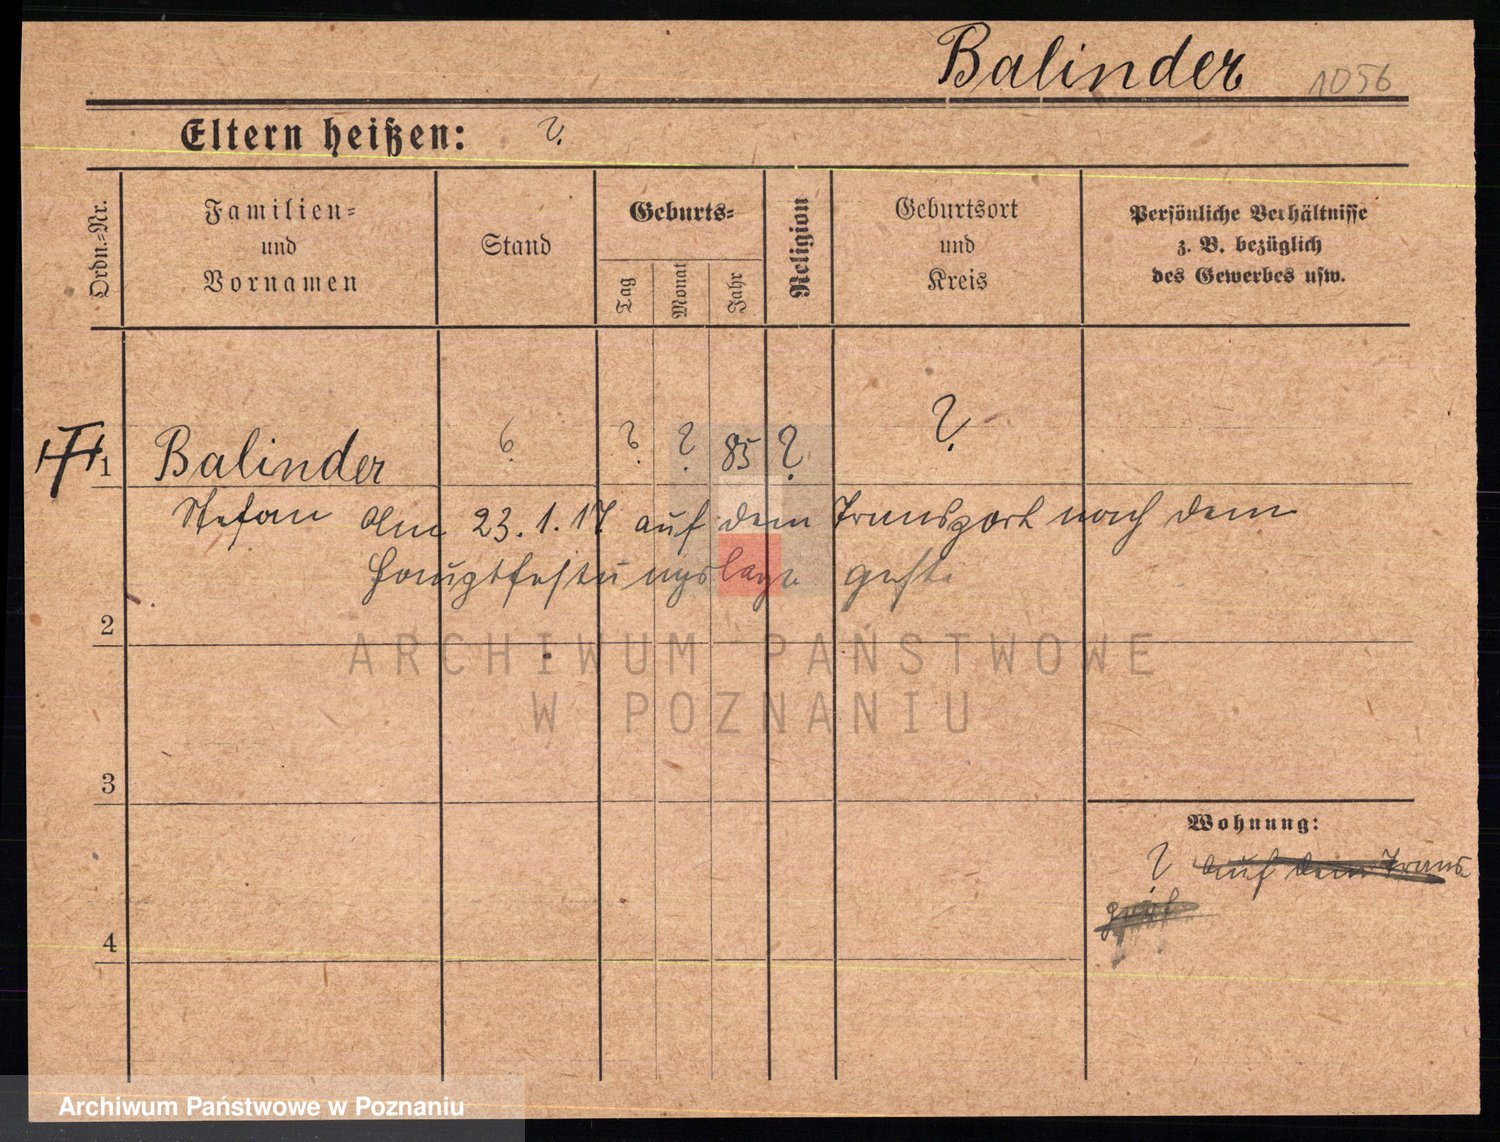 Balinder 1056
Eltern heißen: ?
Ordn.=Nr.
Familien=
und
Vornamen
Stand
Geburts=
Tag
Monat
Jahr
Religion
Geburtsort
und
Kreis
Persönliche Verhältnisse
z. B. bezüglich
des Gewerbes usw.
1 Balinder ? ? ? 85 ? ?
Stefan Am 23.1.17 auf dem Transport nach dem
Hauptfestungslaza
2
ARCHIWUM PAŃSTWOWE
W POZNANIU
3
Wohnung:
? auf dem Trans
port
4
Archiwum Państwowe w Poznaniu